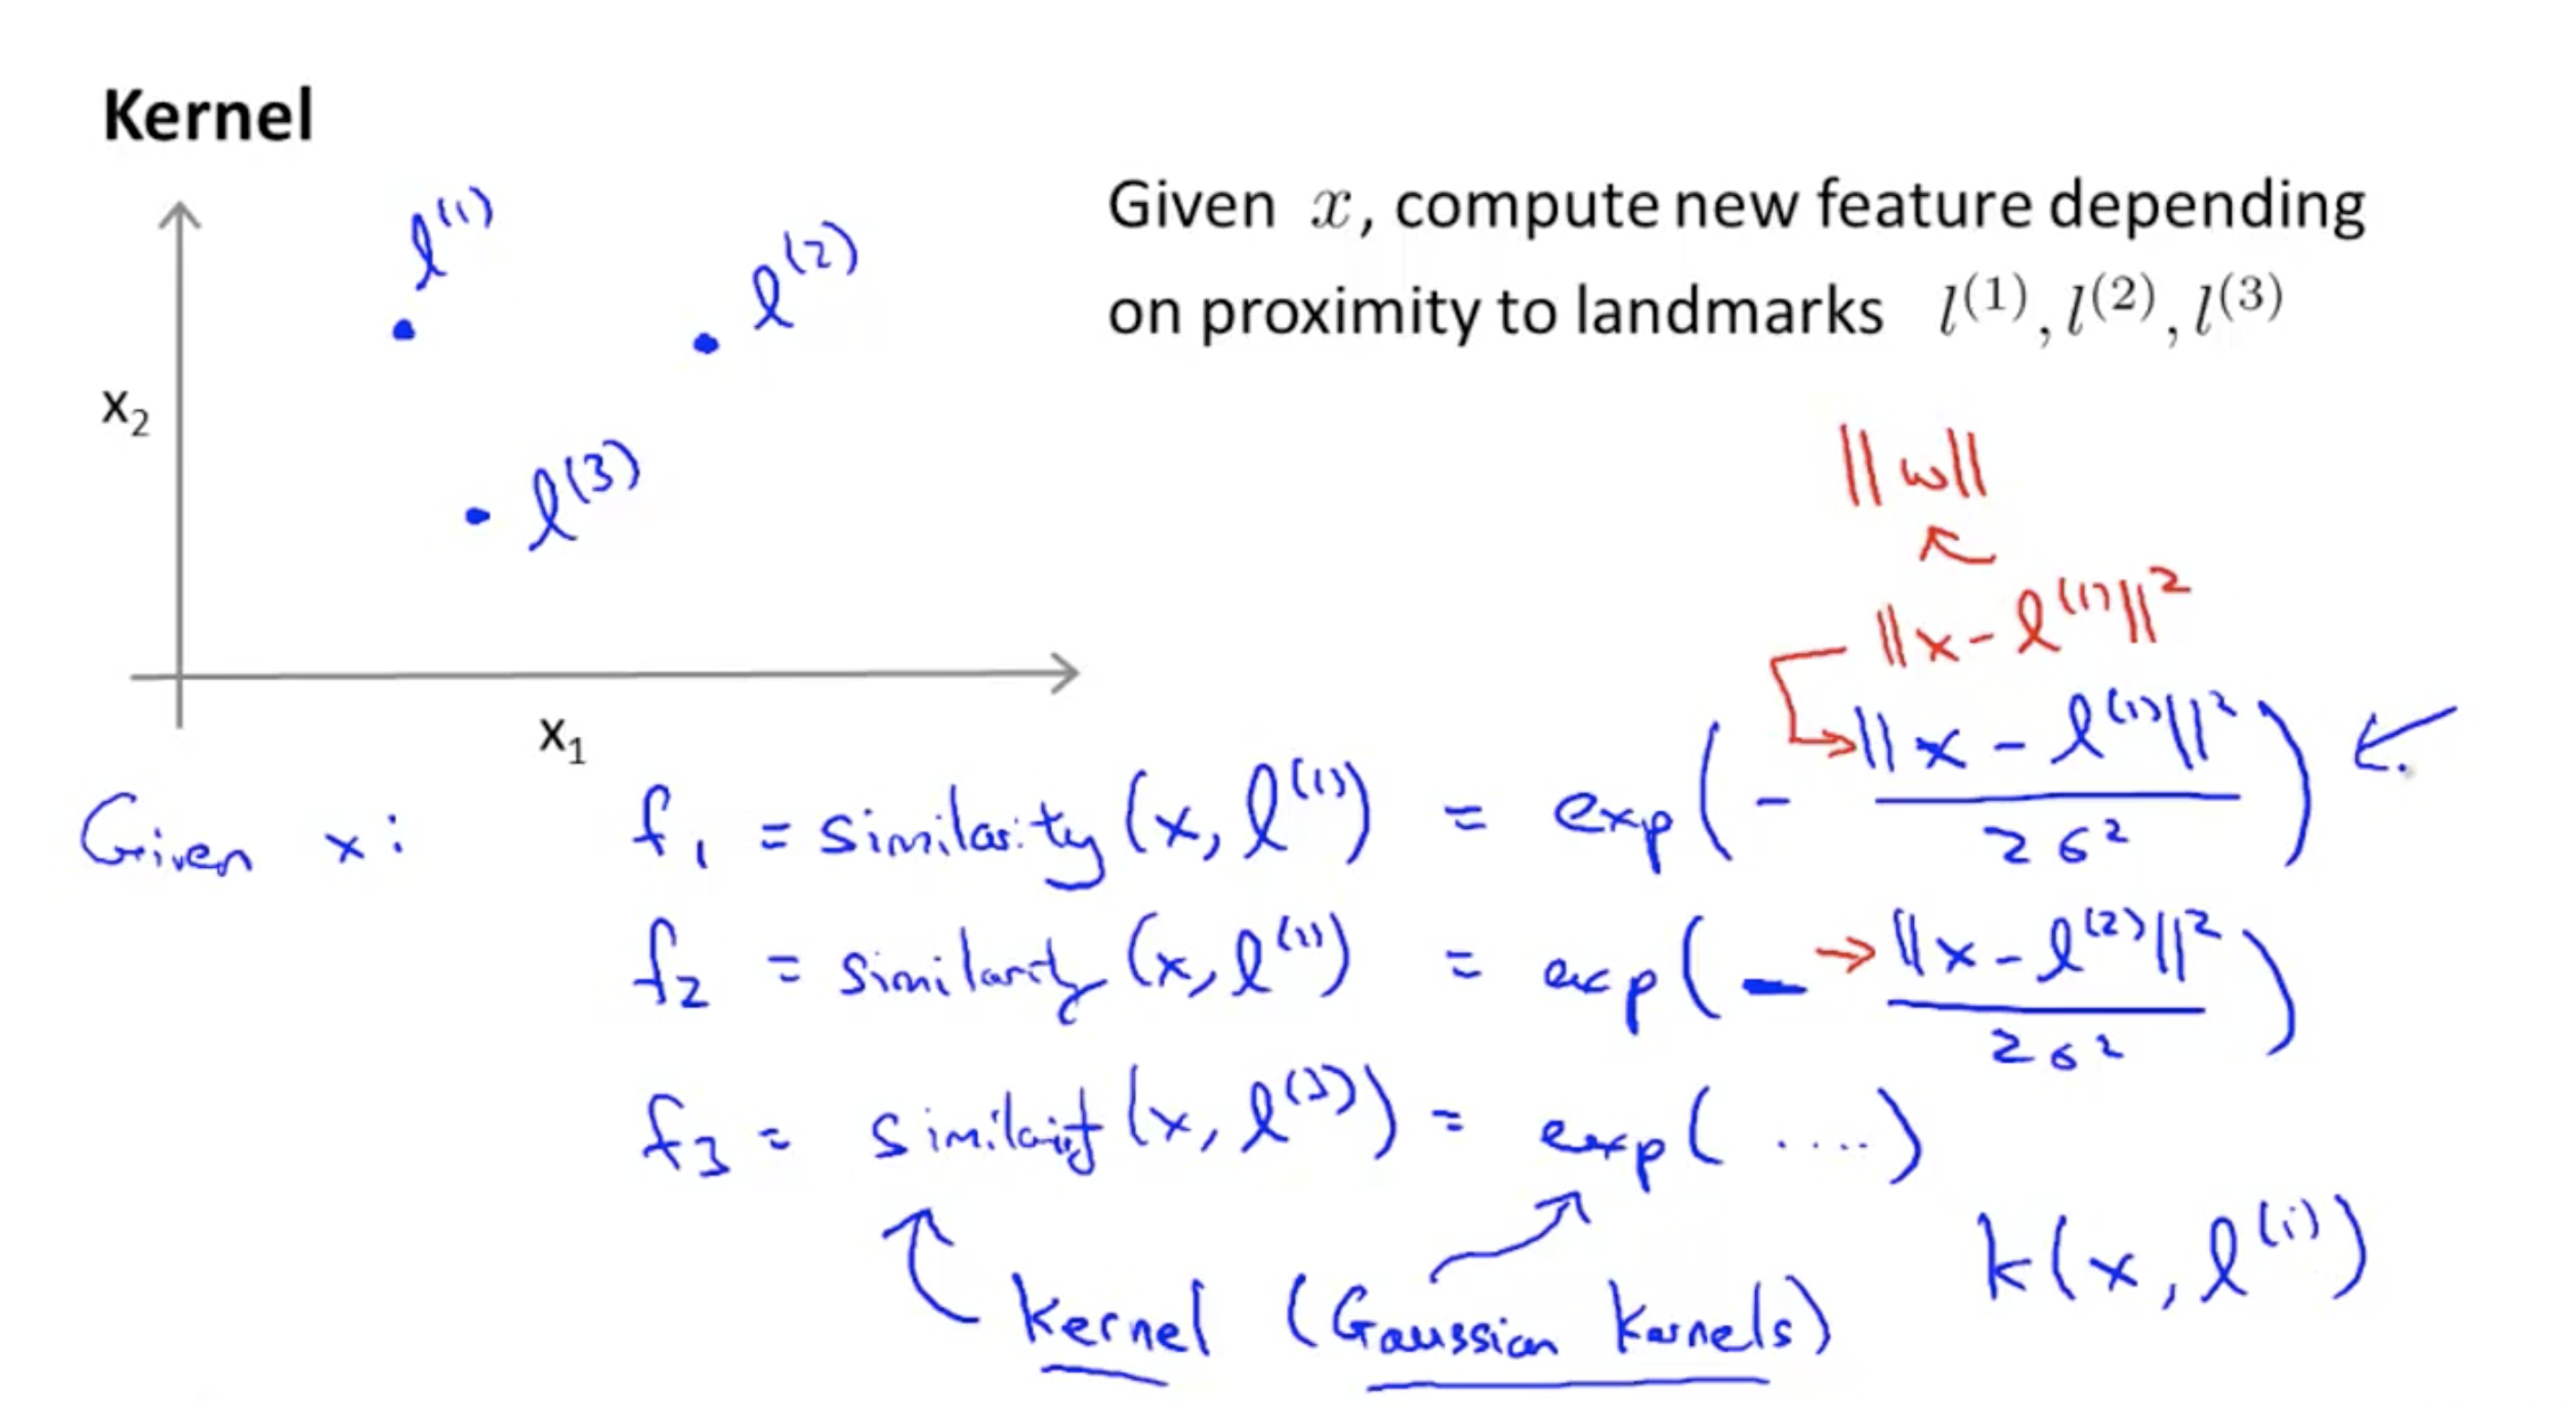 Kernel
l^(1)
l^(2)
x₂
l^(3)
x₁
Given x, compute new feature depending
on proximity to landmarks l^(1), l^(2), l^(3)
||w||
||x - l^(1)||²
Given x: f₁ = similarity (x, l^(1)) = exp(- ||x - l^(1)||² / 2σ²)
f₂ = similarity (x, l^(1)) = exp(- ||x - l^(2)||² / 2σ²)
f₃ = similarity (x, l^(3)) = exp( .... )
kernel (Gaussian kernels) k(x, l^(i))